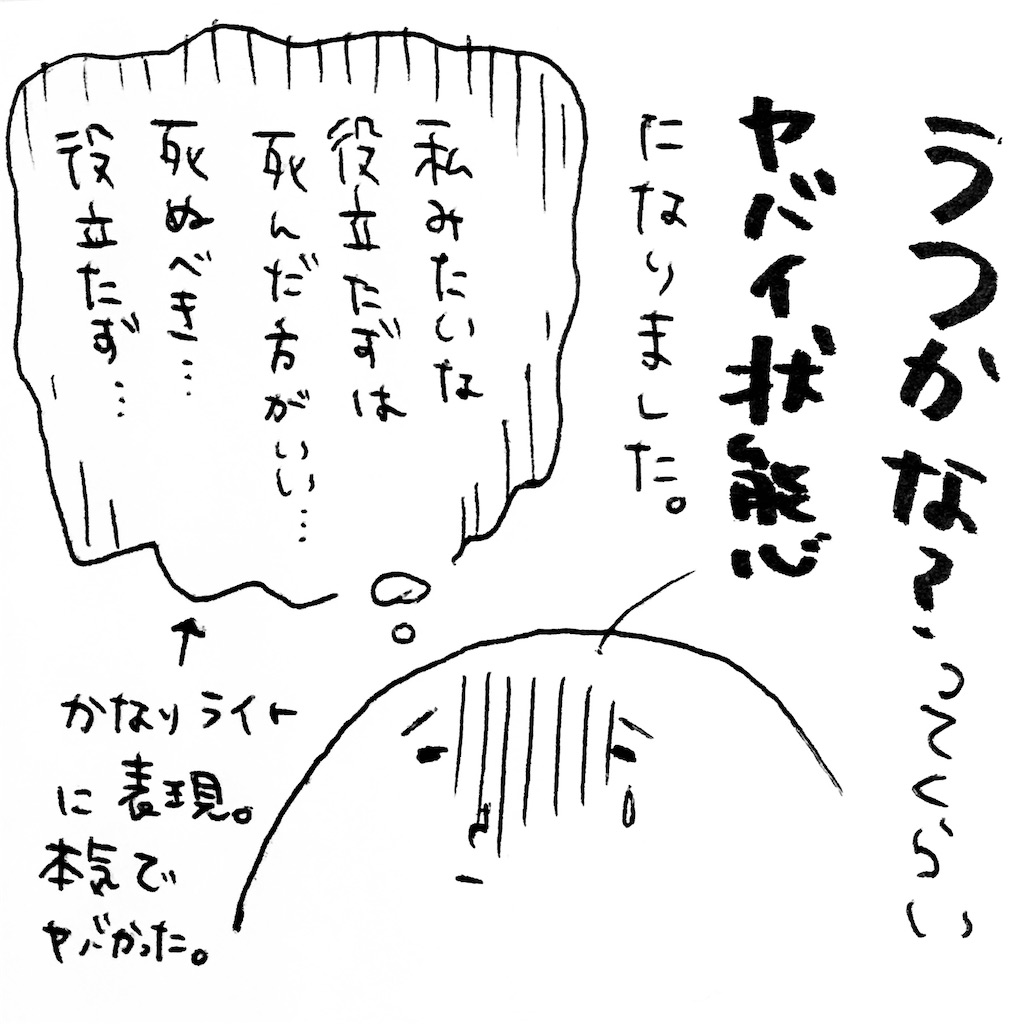 うつかな？ってくらい
ヤバイ状態
になりました。
私みたいな
役立たずは
死んだ方がいい…
死ぬべき…
役立たず…
かなりライト
に表現。
本気で
ヤバかった。